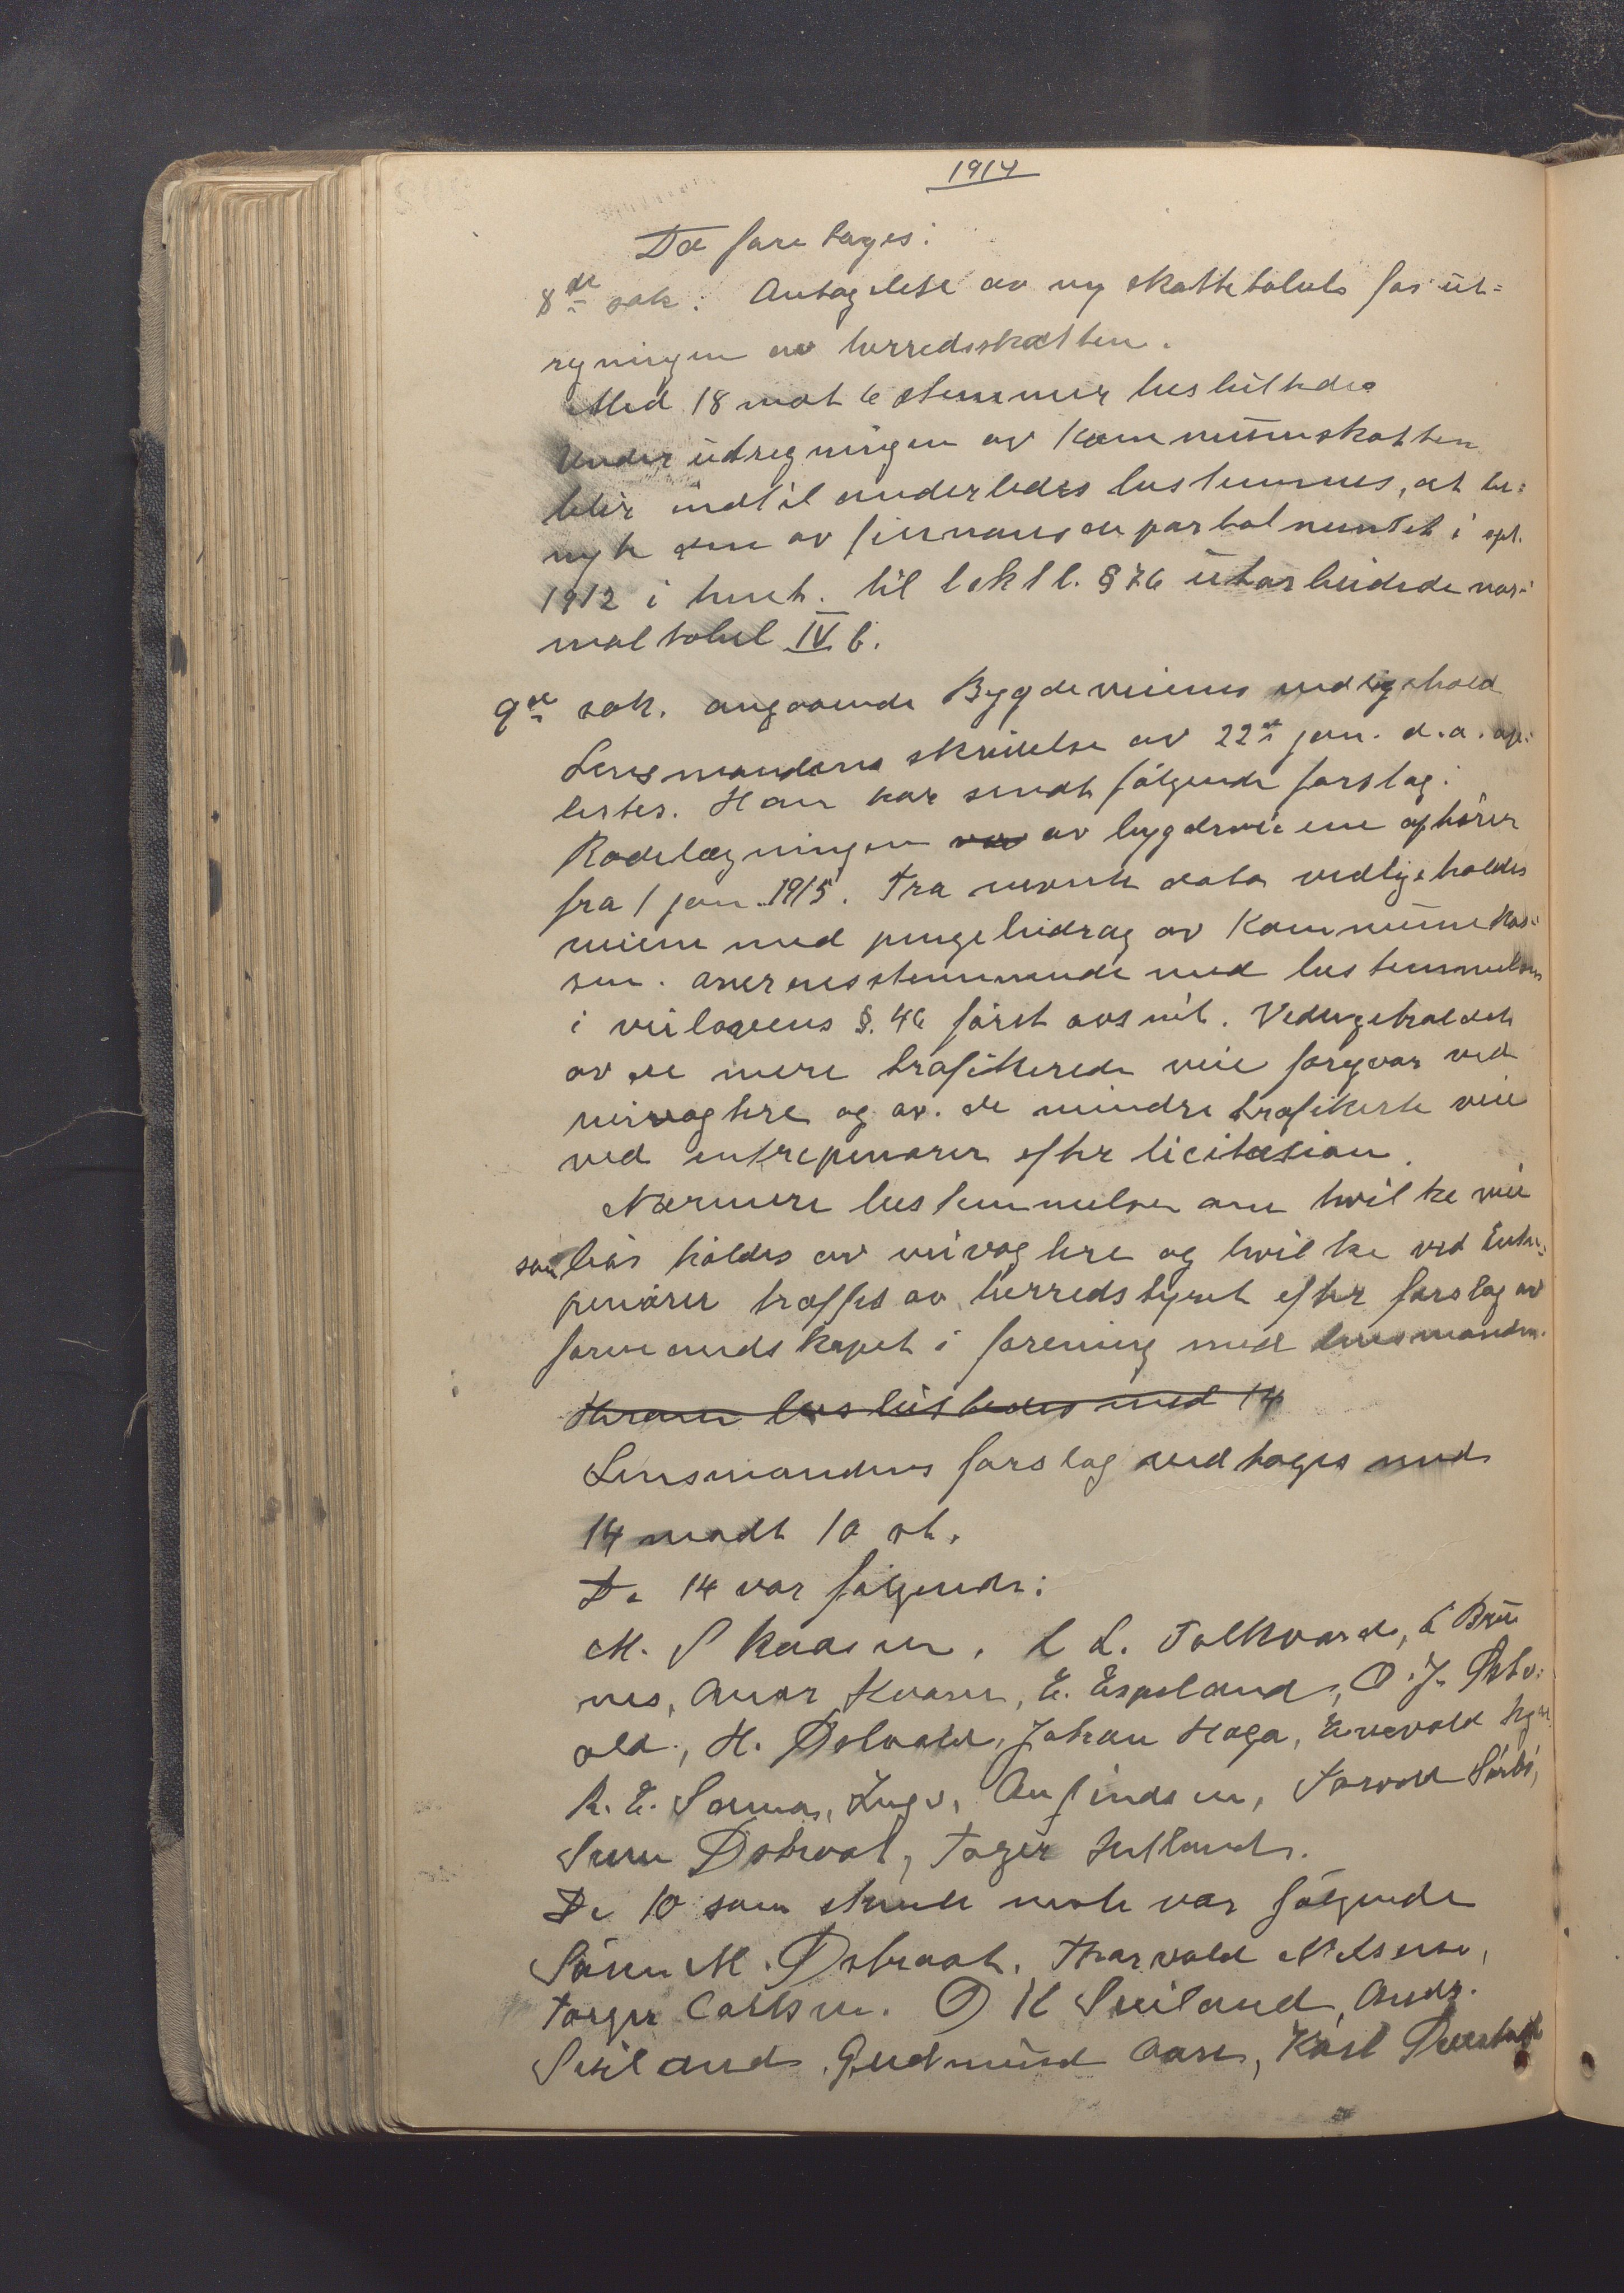 1914
Da foretages:
8de sak: Antagelse av ny skattetabels for ut=
regningen av herredsskatten.
Med 18 mot 6 stemmer besluttedes
Under utregningen av Kommuneskatten
blir indtil anderledes bestemmes, at be=
nyte den av finansdepartalmentet i spt.
1912 i henh. til lsktl. § 76 utarbeidede nor=
maltabel IV b.
9de sak. angaaende Bygdeveienes vedligehold
Lensmandens skrivelse av 22de jan. d.a. op=
lestes. Han har sendt følgende forslag:
Rodelægningen av bygdeveiene ophører
fra 1 jan. 1915. Fra nevnte dato vedligeholdes
veiene med pengebidrag av Kommunekas=
sen. overensstemmende med bestemmelsen
i veilovens §. 46 først avsnit. Vedligeholdet
av de mere trafikerede veie foregaar ved
veivogtere og av. de mindre trafikerte veie
ved entrepenører efter licitasion.
Nærmere bestemmelser om hvilke veie
som bør holdes av veivogtere og hvilke ved Entre=
penører træffes av herredstyret efter forslag av
formandskapet i forening med lensmanden.
Herom besluttedes med 14
Lensmandens forslag vedtages med
14 modt 10 st.
De 14 var følgende:
M. Skaasen, L L. Folkvord, E Bru
nes, Anar Kvam, E. Espeland, O. J. Østv=
old, H. Østvold, Johan Haga, Enevold
R. E. Somma, Ingv. Anfindsen, Torvald Sørbø,
Sven Østraat, Torger Hetland.
De 10 som stemte mote var følgende
Søren M. Østraat, Thorvald Nilsen,
Torger Carlsen. O H Skeiland, Andr.
Skeiland, Gudmund Aase, Karl